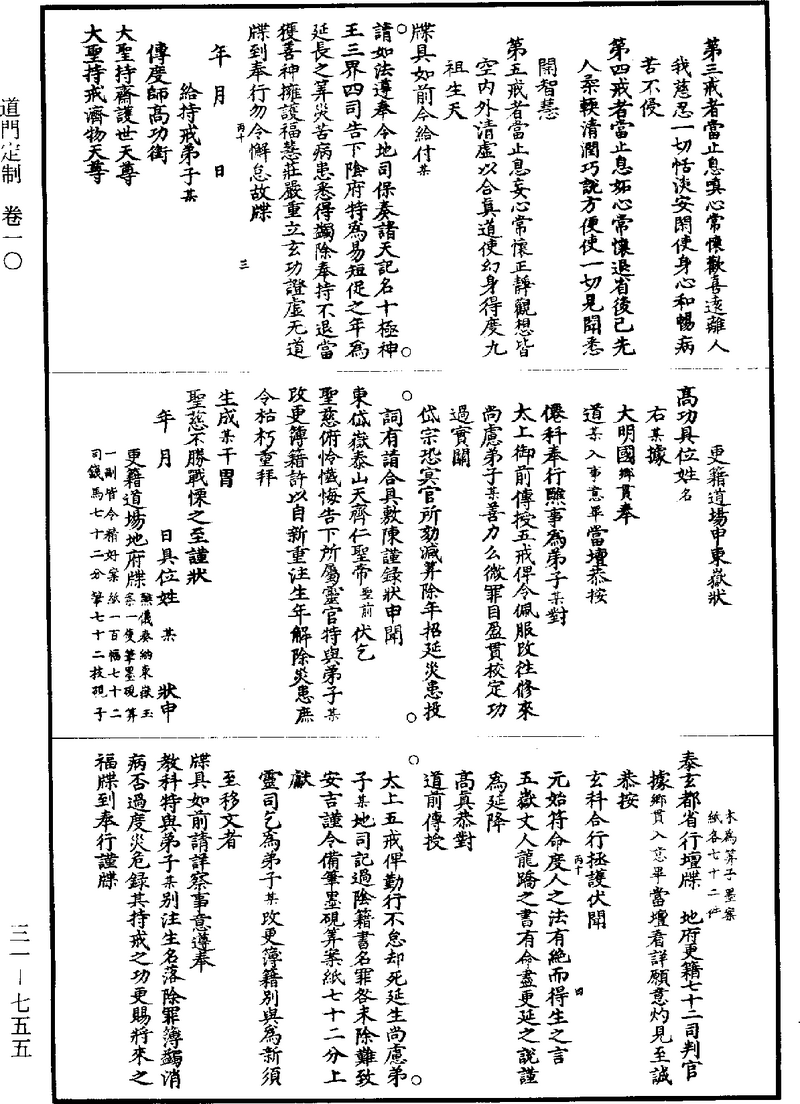 第三戒者當止息嗔心常懷歡喜遠離人
我慈忍一切恬淡安閑使身心和暢病
苦不侵
第四戒者當止息妬心常懷退省後己先
人柔輭清潤巧說方便使一切見聞悉
開智慧
第五戒者當止息妄心常懷正靜觀想皆
空內外清虛以合真道使幻身得度九
祖生天
牒具如前今給付某
請如法遵奉令地司保奏諸天記名十極神
王三界四司告下陰府特為易短促之年為
延長之筭災苦病患悉得蠲除奉持不退當
獲善神擁護福慧莊嚴重立玄功證虛无道
牒到奉行勿令懈怠故牒
丙十
三
年 月 日
給持戒弟子某
傳度師高功銜
大聖持齋護世天尊
大聖持戒濟物天尊
更籍道場申東嶽狀
高功具位姓名
右某據
大明國鄉貫奉
道某入事意畢當壇恭按
僊科奉行熊事為弟子某對
太上御前傳授五戒俾令佩服改往修來
尚慮弟子某善力么微罪目盈貫校定功
過實關
岱宗恐冥官所劾減筭除年招延災患投
詞有請合具敷陳謹錄狀申聞
東岱嶽泰山天齊仁聖帝聖前伏乞
聖慈俯怜懺悔告下所屬靈官特與弟子某
改更簿籍許以自新重注生年解除災患庶
令枯朽重拜
生成某干冒
聖慈不勝戰慄之至謹狀
年 月 日具位姓 某 狀申
更籍道場地府牒
熊儀奏納東嶽玉
案一隻筆墨硯筭
一副皆令精好案紙一百幅七十二
司錢馬七十二分筆七十二枝硯子
木為筭子墨案
紙各七十二件
泰玄都省行壇牒 地府更籍七十二司判官
據鄉貫入意畢當壇看詳願意灼見至誠
恭按
玄科合行拯護伏聞
丙十
四
元始符命度人之法有絶而得生之言
五嶽丈人龍蹻之書有命盡更延之說謹
為延降
高真恭對
道前傳授
太上五戒俾勤行不怠却死延生尚慮弟
子某地司記過陰籍書名罪咎未除難致
安吉謹令備筆墨硯筭案紙七十二分上
獻
靈司乞為弟子某改更簿籍別與為新須
至移文者
牒具如前請詳察事意遵奉
教科特與弟子某別注生名落除罪簿蠲消
病否過度災危録其持戒之功更賜將來之
福牒到奉行謹牒
道門定制 卷一〇
三一—七五五